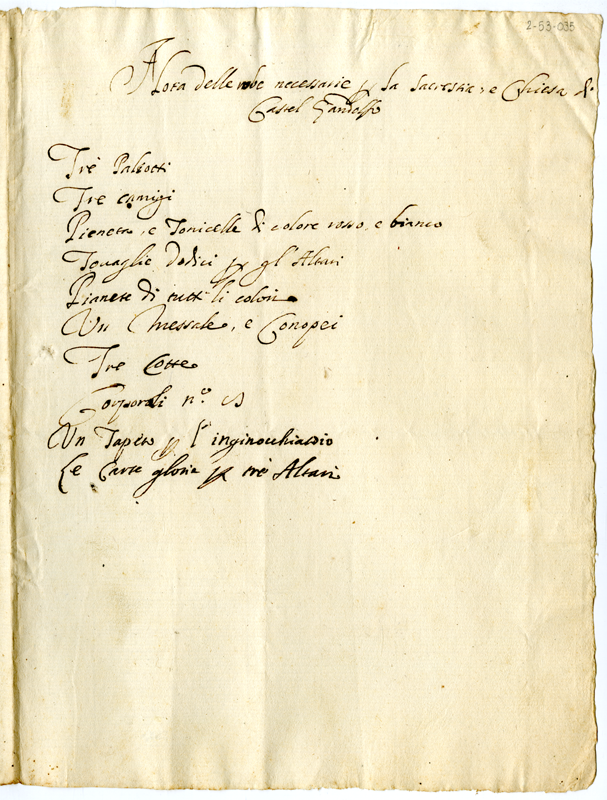 2-53-035
Nota delle robe necessarie p la Sacrestia, e Chiesa di
Castel Gandolfo
Trè Paliotti
Tre camigi
Pieneta, e Tonicelle di colore rosso, e bianco
Tovaglie dodici p gl'Altari
Pianete di tutti li colori
Un Messale, e Conopei
Tre Cotte
Corporali n.º
Un Tapeto p l'inginocchiatoio
Le Carte gloria p trè Altari